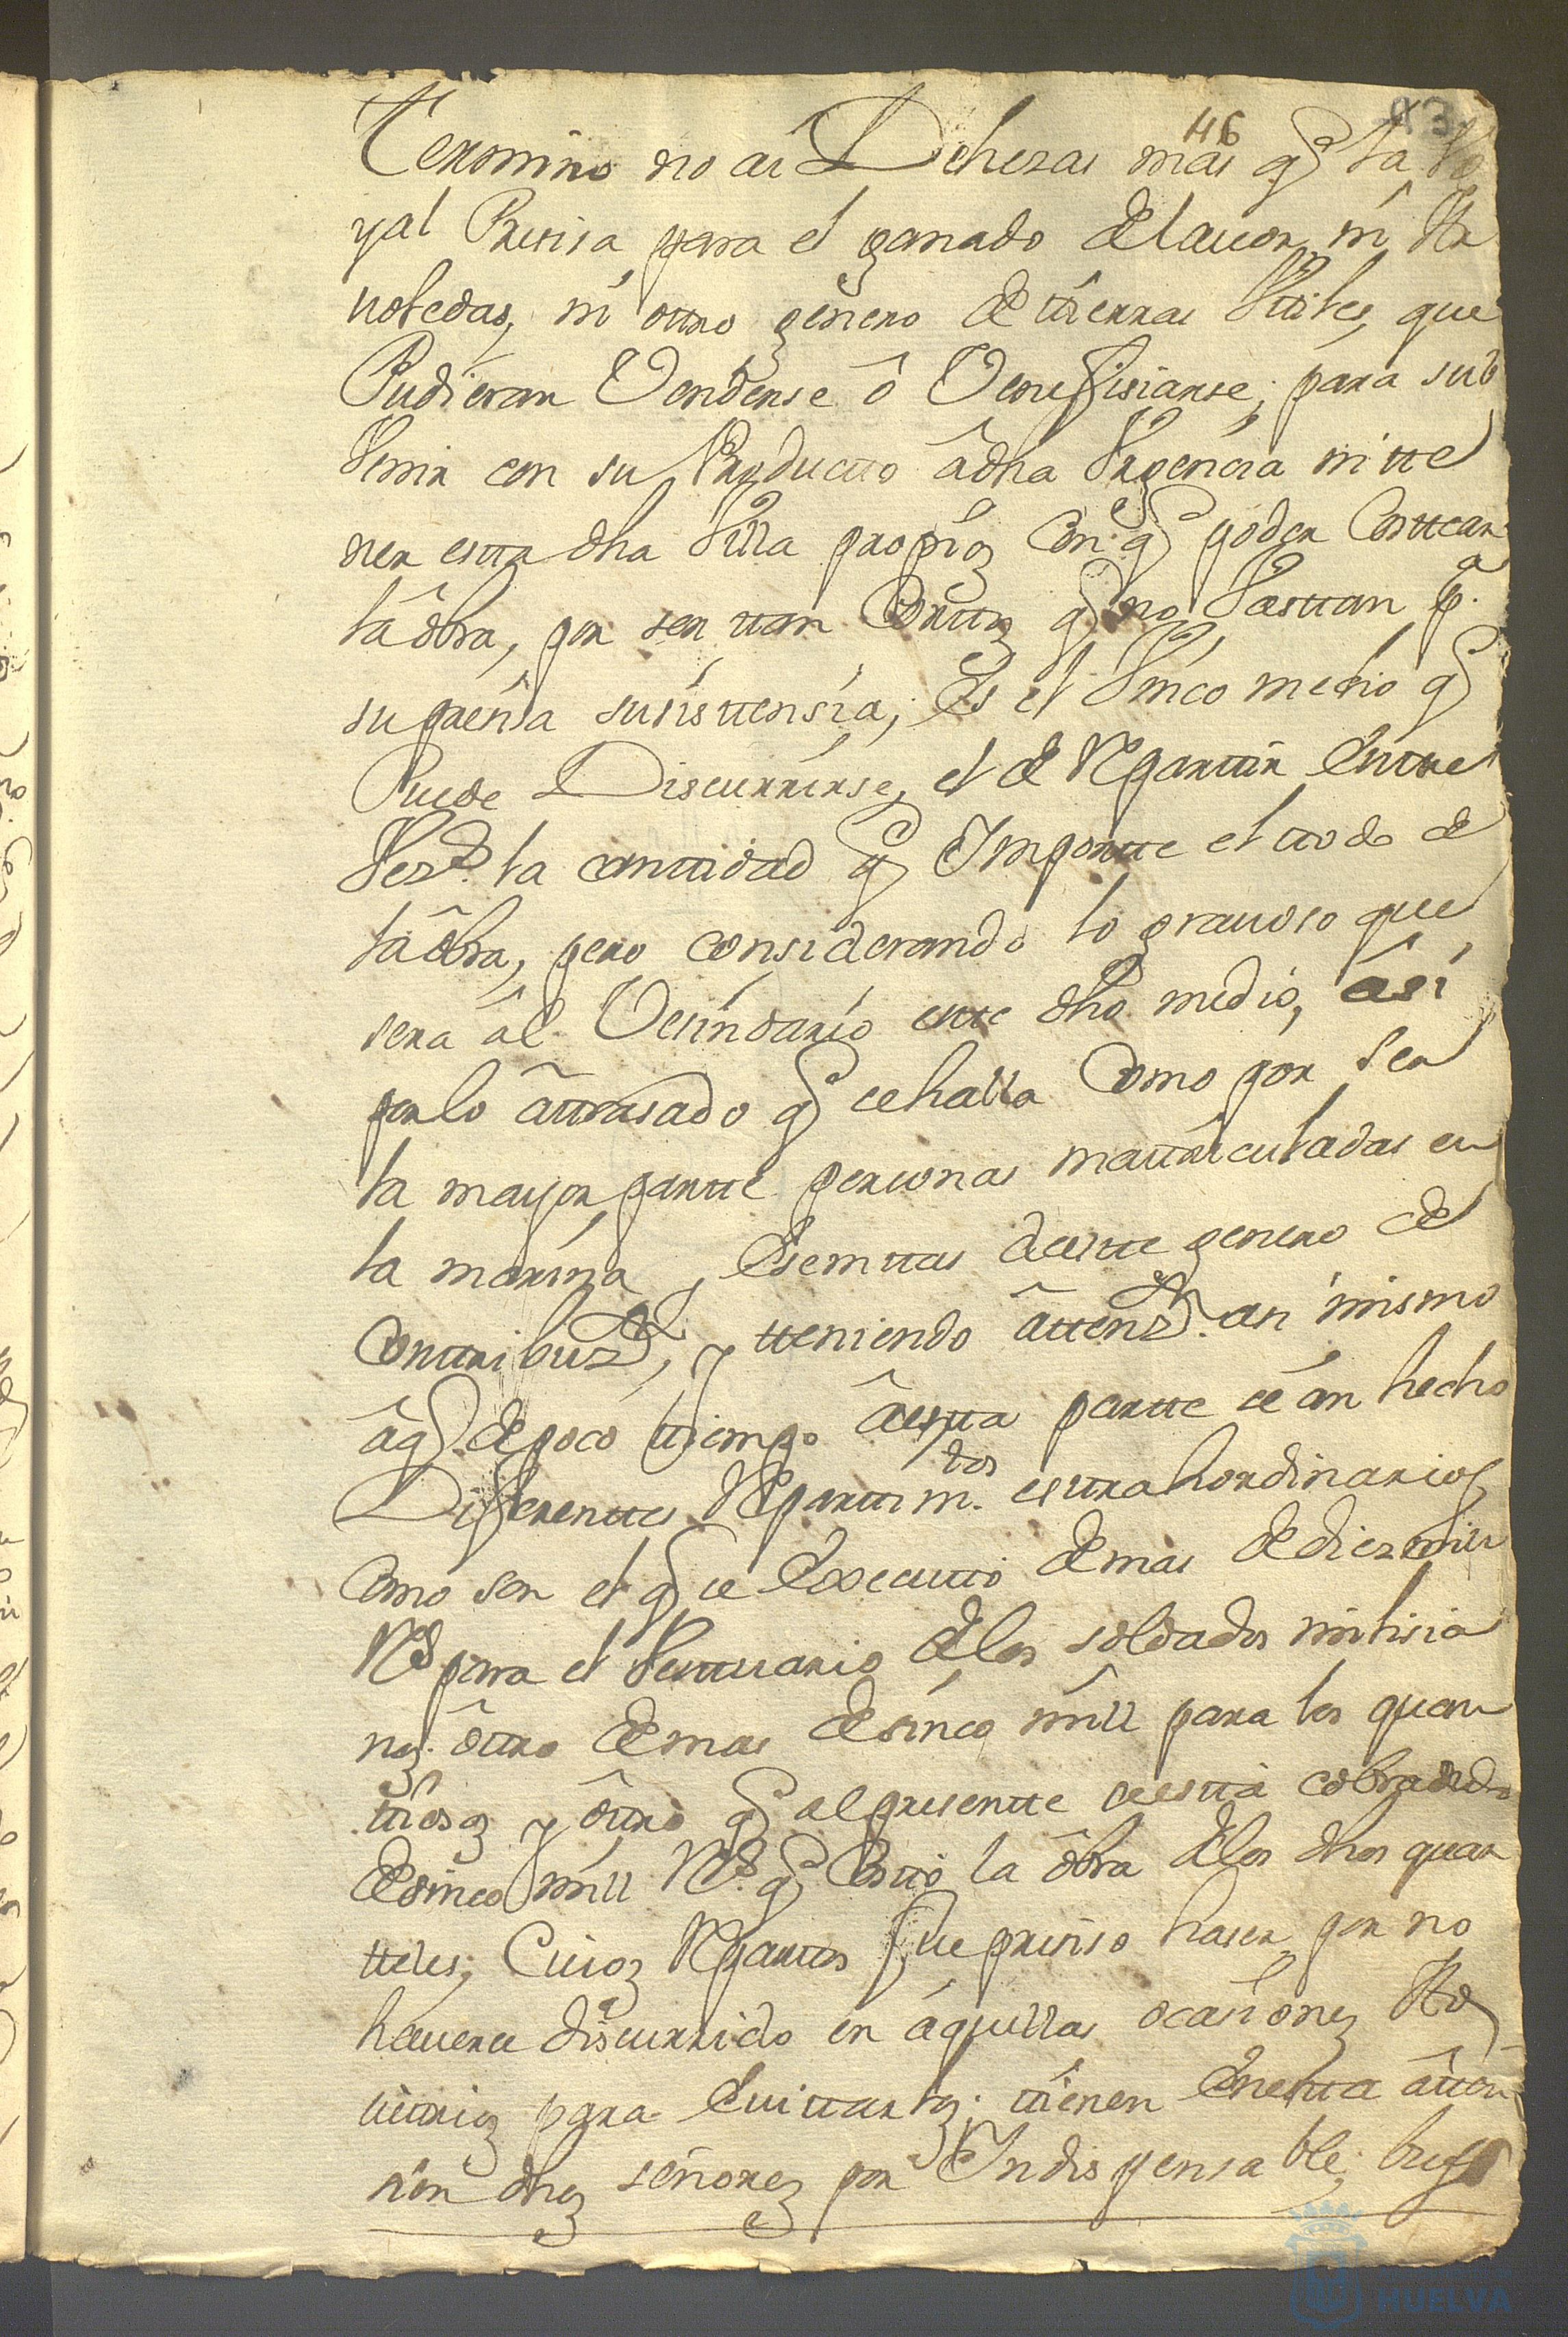 46 93
Termino no ai Dehezas mas q̃ la Vo
yal Presisa para el ganado de lauor ni Ar
uoledas, ni otro genero de tierras Vtiles, que
Pudieran Venderse ô Venefisiarse, para sub
Venir con su Producto âdha Vrgencia ni tte
ner esta dha Villa propios con q̃ poder Costtear
la ôbra, por ser tan Corttos q̃ no Vasttan p.ª
su presisa susisttensia; Es el Vnico medio q̃
Puede Discurrirse, el de Reparttir Enttre
Vez.s la canttidad q̃ Imporrte el ttodo de
la ôbra, pero considerando lo grauoso que
sera âl Vesindario estte dho medio, âsi
por lo âttrasado q̃ se halla Como por ser
la mayor partte personas mattriculadas en
la marina, Esemttas de estte genero de
Conttribuz.on, y tteniendo âttenz.on asi mismo
âq̃ de poco ttiempo âestta partte se án hecho
Differenttes Reparttim.tos esttrahordinarios
Como son el q̃ se Executtó de mas de diez mill
R.s para el Vestuario de los soldados milisia
nos. ôttro de mas de sinco mill para los quan
ttiosos y ôttro q̃ al presentte se está cobrando
de sinco mill R.s q̃ Costtó la ôbra de los dhos quar
tteles, Cuios Reparttos fue presiso haser por no
hauerse discurrido en aquellas ocasiones Ar
uitrios para Euittarlos; ttienen Enestta âtten
sion dhos señores por Indispensable, bus
HUELVA